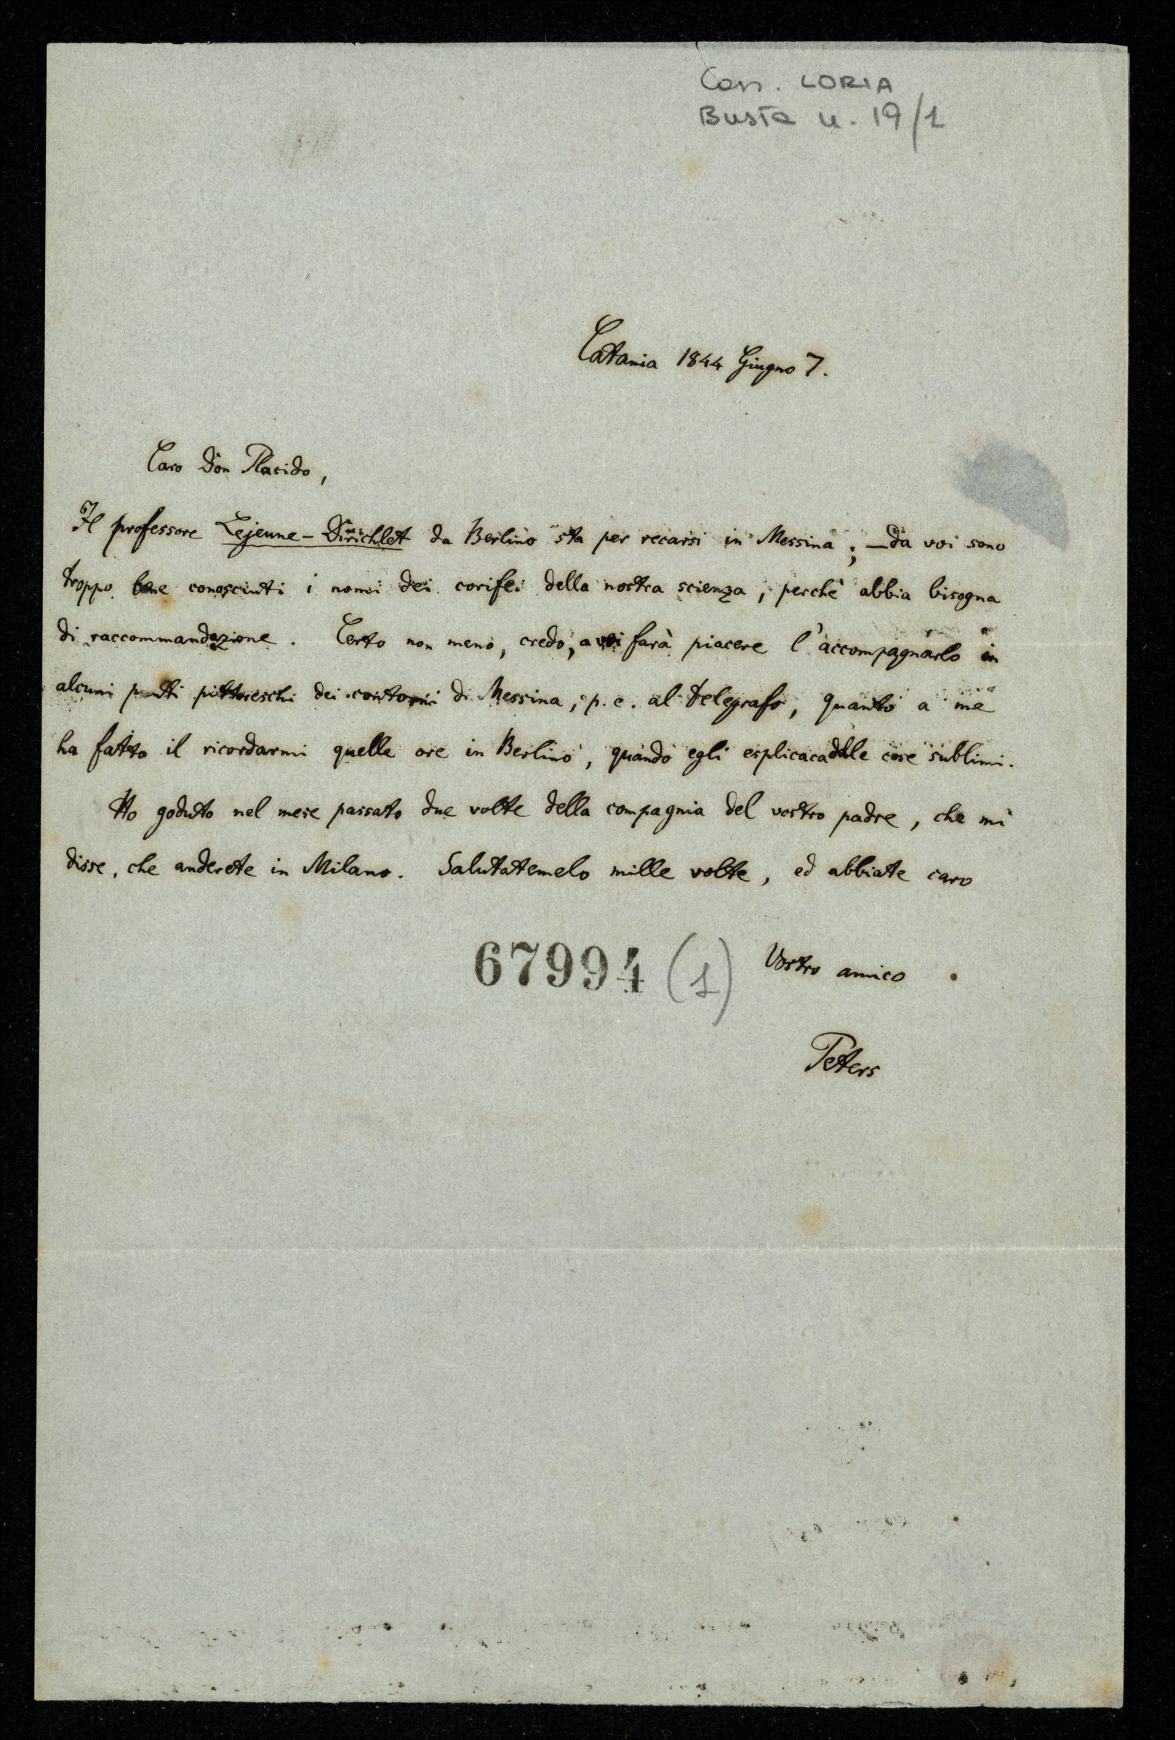 Corr. LORIA
Busta n. 19/1
Catania 1844 Giugno 7.
Caro Don Placido,
Il professore Lejeune-Dirichlet da Berlino sta per recarsi in Messina; — da voi sono
troppo bene conosciuti i nomi dei corifei della nostra scienza, perchè abbia bisogna
di raccommandazione. Certo non meno, credo, a voi farà piacere l'accompagnarlo in
alcuni punti pittoreschi dei contorni di Messina, p. e. al telegrafo, quanto a me
ha fatto il ricordarmi quelle ore in Berlino, quando egli esplicaca delle cose sublimi.
Ho goduto nel mese passato due volte della compagnia del vostro padre, che mi
disse, che anderete in Milano. Salutatemelo mille volte, ed abbiate caro
67994 (1) Vostro amico
Peters